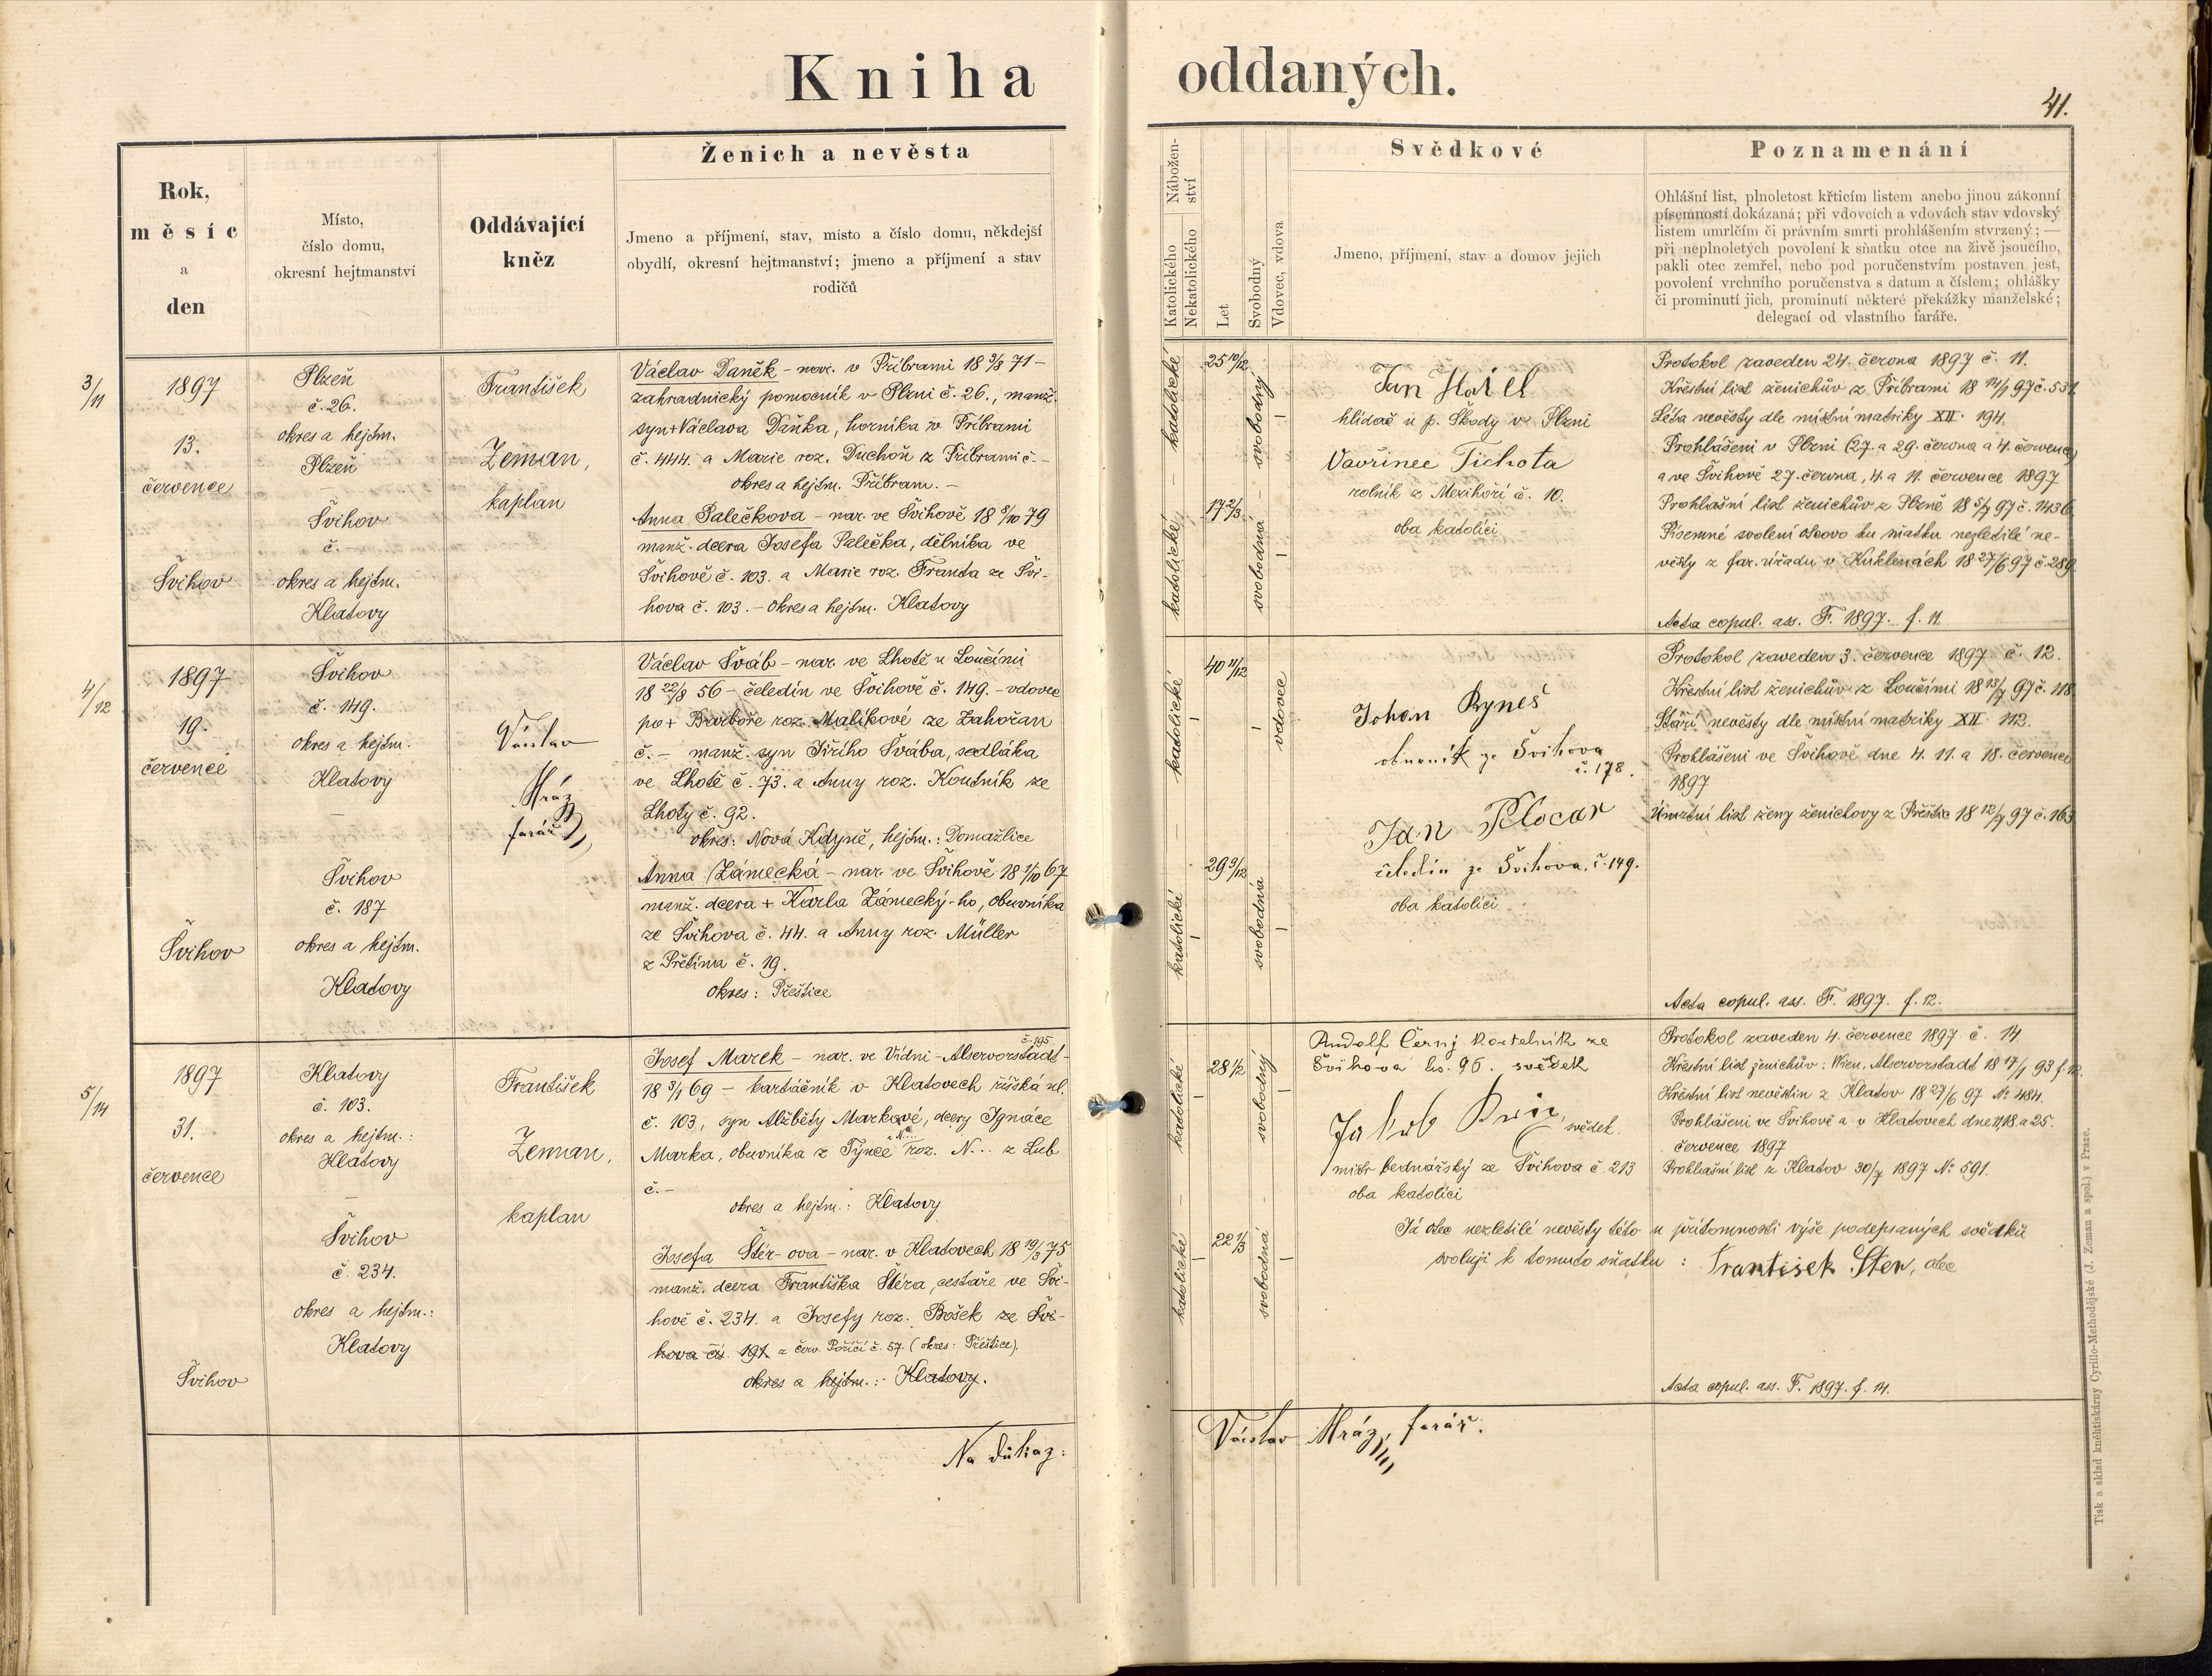 Kniha oddaných.
41.
Rok,
měsíc
a
den
Místo,
číslo domu,
okresní hejtmanství
Oddávající
kněz
Ženich a nevěsta
Jmeno a příjmení, stav, místo a číslo domu, někdejší
obydlí, okresní hejtmanství; jmeno a příjmení a stav
rodičů
Nábožen-
ství
Katolického
Nekatolického
Let
Svobodný
Vdovec, vdova
Svědkové
Jmeno, příjmení, stav a domov jejich
Poznamenání
Ohlášní list, plnoletost křticím listem anebo jinou zákonní
písemností dokázaná; při vdovcích a vdovách stav vdovský
listem umrlčím či právním smrti prohlášením stvrzený; —
při neplnoletých povolení k sňatku otce na živě jsoucího,
pakli otec zemřel, nebo pod poručenstvím postaven jest,
povolení vrchního poručenstva s datum a číslem; ohlášky
či prominutí jich, prominutí některé překážky manželské;
delegací od vlastního faráře.
3/11
1897
13.
července
Švihov
Plzeň
č. 26.
okres a hejtm.
Plzeň
—
Švihov
č.
okres a hejtm.
Klatovy
František
Zeman,
kaplan
Václav Daněk – nar. v Příbrami 18 9/8 71 –
zahradnický pomocník v Plzni č. 26., manž.
syn + Václava Daňka, horníka v Příbrami
č. 444. a Marie roz. Duchoň z Příbrami č. –
okres a hejtm. Příbram. –
Anna Palečkova – nar. ve Švihově 18 8/10 79
manž. dcera Josefa Palečka, dělníka ve
Švihově č. 103. a Marie roz. Franta ze Švi-
hova č. 103. – Okres a hejtm. Klatovy
katolické
25 10/12
svobodný
katolické
17 2/3
svobodná
Jan
hlídač u p. Škody v Plzni
Vavřinec Tichota
rolník z Mezihoří č. 10.
oba katolíci
Protokol zaveden 24. června 1897 č. 11.
Křestní list ženichův z Příbrami 18 14/1 97 č. 531.
Léta nevěsty dle místní matriky XII. 194.
Prohlášeni v Plzni (27. a 29. června a 4. července)
a ve Švihově 27. června, 4. a 11. července 1897
Prohlašní list ženichův z Plzně 18 5/7 97 č. 1436
Písemné svolení otcovo ku sňatku nezletilé ne-
věsty z far. úřadu v Kuklenách 18 27/6 97 č. 289
Acta copul. ass. F. 1897. f. 11.
4/12
1897
19.
červenec
Švihov
Švihov
č. 149.
okres a hejtm.
Klatovy
—
Švihov
č. 187
okres a hejtm.
Klatovy
Václav
Mráz
farář
Václav Šváb – nar. ve Lhotě u Loučími
18 22/8 56 – čeledín ve Švihově č. 149. – vdovec
po + Barboře roz. Malíkové ze Zahořan
č. – manž. syn Jiřího Švába, sedláka
ve Lhotě č. 73. a Anny roz. Koutník ze
Lhoty č. 92.
okres: Nová Kdyně, hejtm.: Domažlice
Anna Zámecká – nar. ve Švihově 18 1/10 67
manž. dcera + Karla Zámecký-ho, obuvníka
ze Švihova č. 44. a Anny roz. Müller
z Přetína č. 19.
okres: Přeštice
katolické
40 11/12
vdovec
katolické
29 9/12
svobodná
Johan Ryneš
obuvník ze Švihova
č. 178.
Jan Klocar
čeledín ze Švihova, č. 149.
oba katolíci
Protokol zaveden 3. července 1897 č. 12.
Křestní list ženichův z Loučimi 18 13/7 97 č. 118
Stáří nevěsty dle místní matriky XII. 112.
Prohlášeni ve Švihově dne 4. 11. a 18. července
1897
Úmrtní list ženy ženichovy z Přeštic 18 12/7 97 č. 163
Acta copul. ass. F. 1897. f. 12.
5/14
1897
31.
července
Švihov
Klatovy
č. 103.
okres a hejtm.:
Klatovy
—
Švihov
č. 234.
okres a hejtm.:
Klatovy
František
Zeman,
kaplan
č. 195.
Josef Marek – nar. ve Vídni – Alservorstadt –
18 3/1 69 – kartáčník v Klatovech říšská ul.
č. 103, syn Alžběty Markové, dcery Ignáce
Marka, obuvníka z Týnce a N... roz. N... z Lub
č. –
okres a hejtm.: Klatovy
Josefa Štěr-ova – nar. v Klatovech 18 19/3 75
manž. dcera Františka Štěra, cestáře ve Švi-
hově č. 234. a Josefy roz. Bošek ze Švi-
hova čís. 191. z červ. Poříčí č. 57. (okres: Přeštice),
okres a hejtm.: Klatovy.
katolické
28 1/2
svobodný
katolické
22 1/3
svobodná
Rudolf Černý kostelník ze
Švihova čís. 96. svědek
Jakub svědek.
mistr bednářský ze Švihova č. 213
oba katolíci
Já otec nezletilé nevěsty této u přítomnosti výše podepsaných svědků
svoluji k tomuto sňatku: František Šter, otec
Protokol zaveden 4. července 1897 č. 14.
Křestní list ženichův: Wien, Alservorstadt 18 17/1 93 f. 12.
Křestní list nevěstin z Klatov 18 27/6 97 № 484.
Prohlášeni ve Švihově a v Klatovech dne 11, 18. a 25.
července 1897
Prohlašní list z Klatov 30/7 1897 № 591.
Acta copul. ass. F. 1897. f. 14.
Na důkaz:
Václav Mráz, farář.
Tisk a sklad knihtiskárny Cyrillo-Methodějské (J. Zeman a spol.) v Praze.